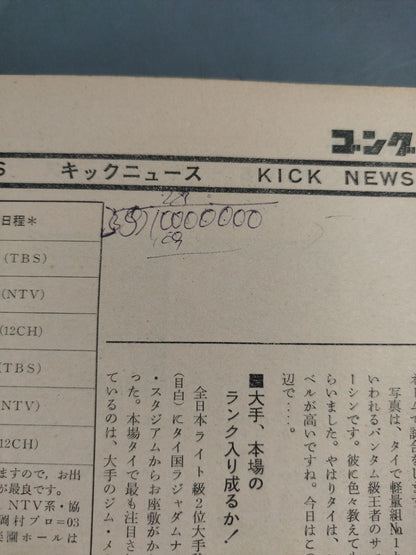 ゴング
S キックニュース KICK NEWS
日程*
(TBS)
(NTV)
(12CH)
(TBS)
(NTV)
(12CH)
ますので，お出
が最良です。
NTV系・協
岡村プロ=03
楽園ホールは
10000000
写真は、タイで軽量級No.1
いわれるバンタム級王者のサ
ーシンです。彼に色々教えても
らいました。やはりタイは、
ベルが高いですね。今日はこ
辺で…。
■大手、本場の
ランク入り成るか！
全日本ライト級2位大手
(目白)にタイ国ラジャダムナ
・スタジアムからお座敷がか
った。本場タイで最も注目さ
ているのは、大手のジム・メ